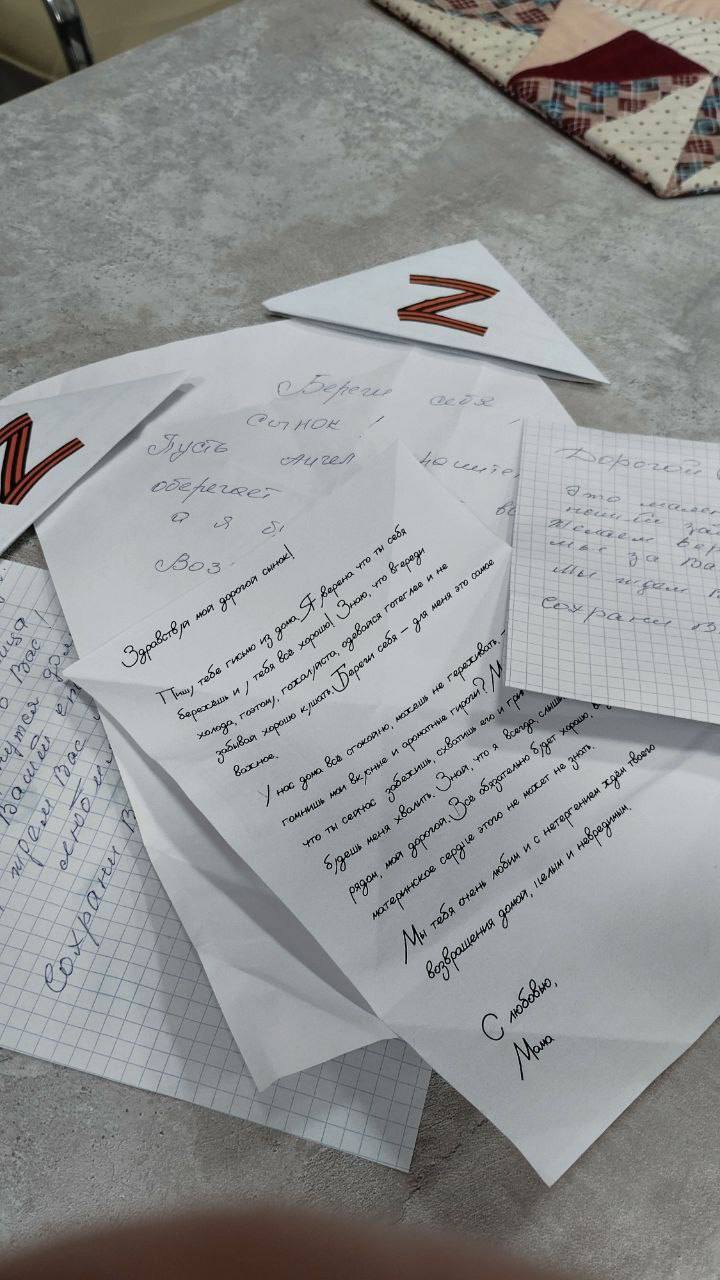 Z
Z
Береги себя,
сынок!
Пусть Ангел
оберегает
а я
Воз
Дорогой
Это
Желаем
мые за Ва
Мы ждем
Сохрани
Вас!
Вашей
ждем Вас
Сохрани В
Здравствуй мой дорогой сынок!
Пишу тебе письмо из дома. Я уверена что ты себя
бережёшь и у тебя всё хорошо! Знаю, что впереди
холода, поэтому, пожалуйста, одевайся потеплее и не
забывай хорошо кушать. Береги себя – для меня это самое
важное.
У нас дома всё спокойно, можешь не переживать, –
помнишь мои вкусные и ароматные пироги? М
что ты сейчас забежишь, схватишь его и при
будешь меня хвалить. Знай, что я всегда
рядом, мой дорогой. Всё обязательно будет хорошо,
материнское сердце этого не может не знать.
Мы тебя очень любим и с нетерпением ждём твоего
возвращения домой, целым и невредимым.
С любовью,
Мама